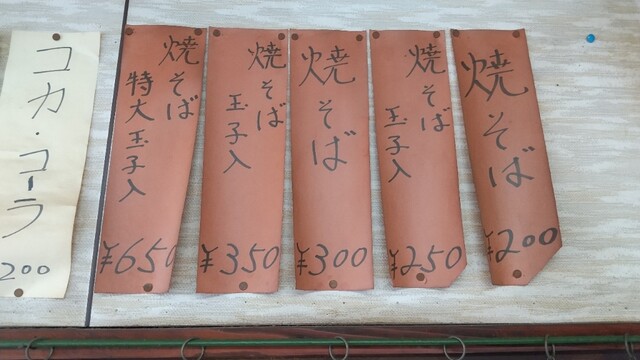 焼そば
¥200
焼そば
玉子入
¥250
焼そば
¥300
焼そば
玉子入
¥350
焼そば
特大玉子入
¥650
コカ・コーラ
200